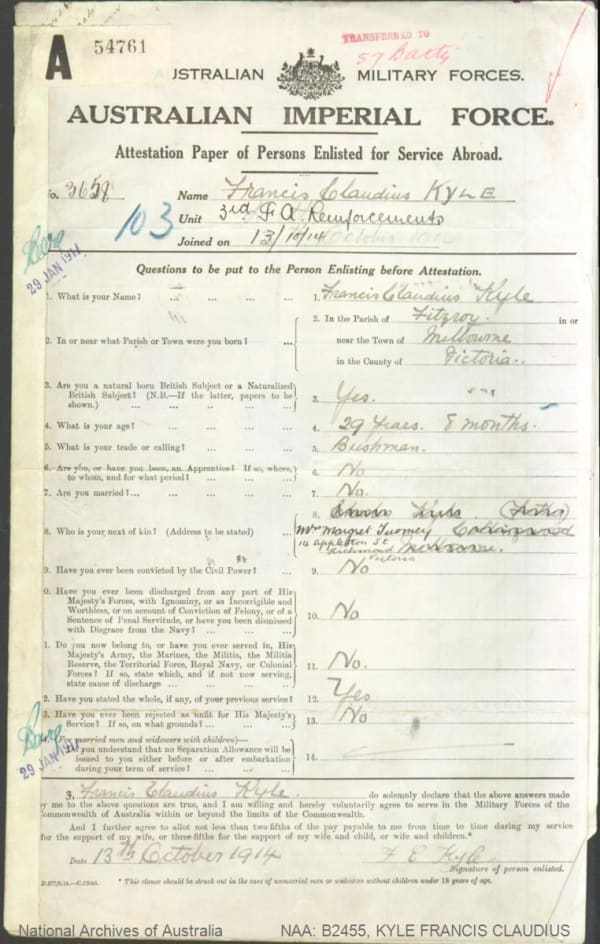 A 54761
TRANSFERRED TO
57 Batty
AUSTRALIAN MILITARY FORCES.
AUSTRALIAN IMPERIAL FORCE.
Attestation Paper of Persons Enlisted for Service Abroad.
No. 3659 Name Francis Claudius KYLE
103
Unit 3rd F.A. Reinforcements
Joined on 13/10/14
29 JAN 1917
Questions to be put to the Person Enlisting before Attestation.
1. What is your Name? ... ... ... ... 1. Francis Claudius Kyle
2. In or near what Parish or Town were you born? ... 2. In the Parish of Fitzroy. in or
near the Town of Melbourne
in the County of Victoria.
3. Are you a natural born British Subject or a Naturalized
British Subject? (N.B.—If the latter, papers to be
shown.) ... ... ... ... ... 3. Yes.
4. What is your age? ... ... ... ... 4. 29 Years. 8 months.
5. What is your trade or calling? ... ... ... 5. Bushman.
6. Are you, or have you been, an Apprentice? If so, where,
to whom, and for what period? ... ... ... 6. No
7. Are you married? ... ... ... ... ... 7. No.
8. Who is your next of kin? (Address to be stated) ... 8. Kyle (Father)
Mrs Margret Twomey Collingwood
14 Appleton St
Richmond Melbourne.
Victoria
9. Have you ever been convicted by the Civil Power? ... 9. No
0. Have you ever been discharged from any part of His
Majesty's Forces, with Ignominy, or as Incorrigible and
Worthless, or on account of Conviction of Felony, or of a
Sentence of Penal Servitude, or have you been dismissed
with Disgrace from the Navy? ... ... ... 10. No
1. Do you now belong to, or have you ever served in, His
Majesty's Army, the Marines, the Militia, the Militia
Reserve, the Territorial Force, Royal Navy, or Colonial
Forces? If so, state which, and if not now serving,
state cause of discharge ... ... ... ... 11. No.
2. Have you stated the whole, if any, of your previous service? 12. Yes
3. Have you ever been rejected as unfit for His Majesty's
Service? If so, on what grounds? ... ... ... 13. No
(For married men and widowers with children)—
Do you understand that no Separation Allowance will be
issued to you either before or after embarkation
during your term of service? ... ... ... 14. —
29 JAN 1917
I, Francis Claudius Kyle. do solemnly declare that the above answers made
by me to the above questions are true, and I am willing and hereby voluntarily agree to serve in the Military Forces of the
Commonwealth of Australia within or beyond the limits of the Commonwealth.
And I further agree to allot not less than two-fifths of the pay payable to me from time to time during my service
for the support of my wife, or three-fifths for the support of my wife and child, or wife and children.*
Date 13th October 1914 F C Kyle
Signature of person enlisted.
* This clause should be struck out in the case of unmarried men or widowers without children under 18 years of age.
National Archives of Australia NAA: B2455, KYLE FRANCIS CLAUDIUS